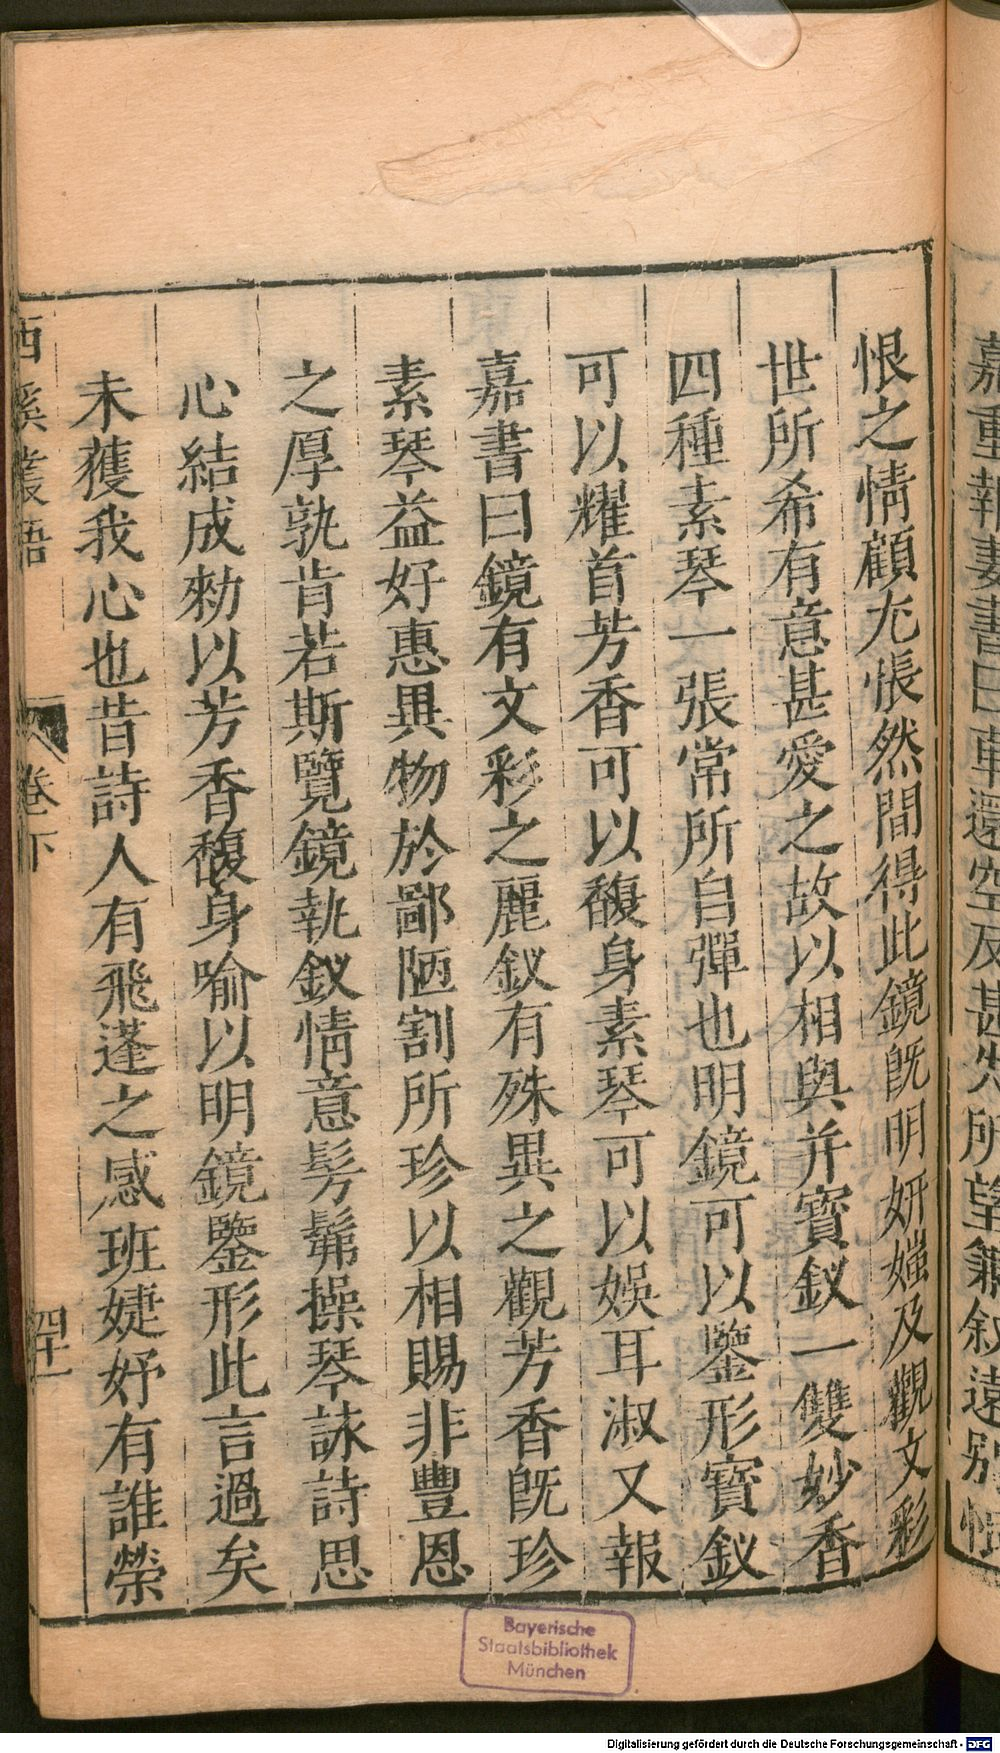 嘉重報妻書曰車還空反甚失所望兼叙遠别恨
恨之情顧尤悵然間得此鏡既明姸媸及觀文彩
世所希有意甚愛之故以相與并寶釵一雙妙香
四種素琴一張常所自彈也明鏡可以鑒形寶釵
可以耀首芳香可以馥身素琴可以娛耳淑又報
嘉書曰鏡有文彩之麗釵有殊異之觀芳香旣珍
素琴益好惠異物於鄙陋割所珍以相賜非豐恩
之厚孰肯若斯覽鏡執釵情意髣髴操琴詠詩思
心結成勑以芳香馥身喻以明鏡鑒形此言過矣
未獲我心也昔詩人有飛蓬之感班婕妤有誰榮
西溪叢語 卷下 四十一
Bayerische
Staatsbibliothek
München
Digitalisierung gefördert durch die Deutsche Forschungsgemeinschaft - DFG